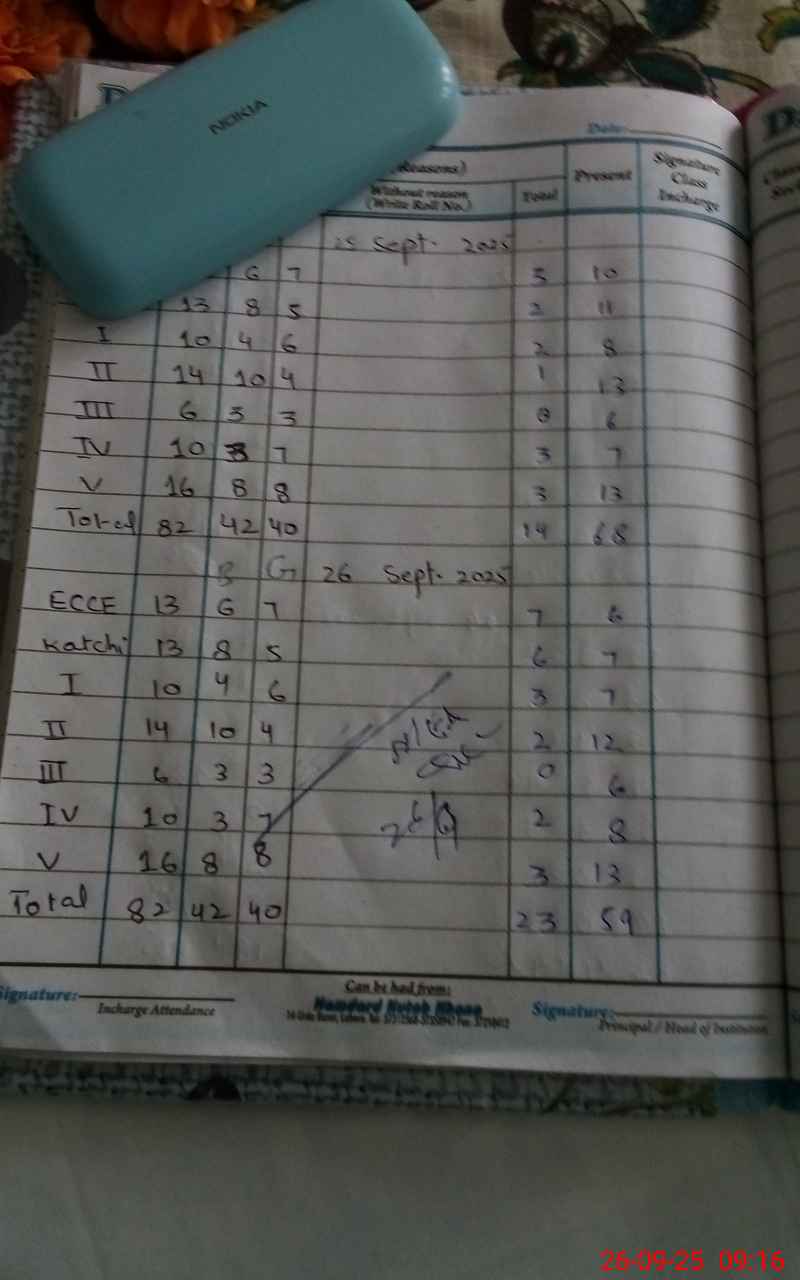 NOKIA
D
Date:
(Reasons)
Without reason
(Write Roll No.)
Total
Present
Signature
Class
Incharge
25 Sept. 2025
6 7 3 10
13 8 5 2 11
I 10 4 6 2 8
II 14 10 4 1 13
III 6 3 3 0 6
IV 10 3 7 3 7
V 16 8 8 3 13
Total 82 42 40 14 68
B G 26 Sept. 2025
ECCE 13 6 7 7 6
Katchi 13 8 5 6 7
I 10 4 6 3 7
II 14 10 4 2 12
III 6 3 3 0 6
IV 10 3 7 2 8
V 16 8 8 3 13
Total 82 42 40 23 59
Signature:
Incharge Attendance
Can be had from:
Hamdard Kutab Khana
Signature:
Principal / Head of Institution
26-09-25 09:16